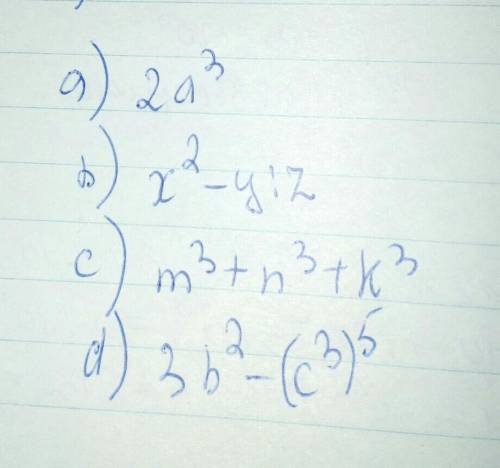 a) 2a³
b) x² - y : z
c) m³ + n³ + k³
d) 3b² - (c³)⁵